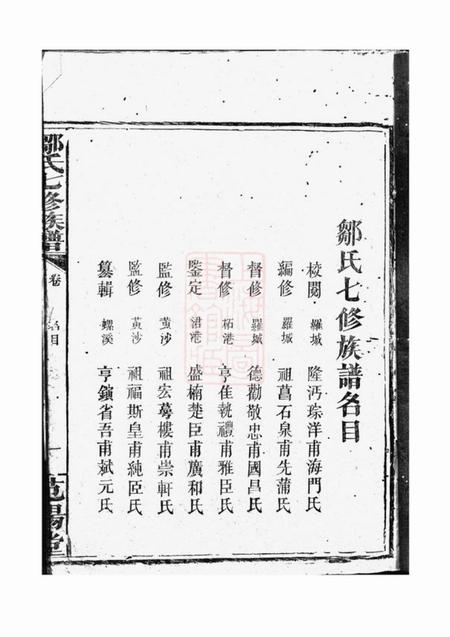 鄒氏七修族譜名目
校閱 羅城 隆沔琮洋甫海門氏
編修 羅城 祖菖石泉甫先蒲氏
督修 羅城 德勸敬忠甫國昌氏
督修 柘港 亨佳執禮甫雅臣氏
鑒定 涒港 盛楠楚臣甫廣和氏
監修 黃沙 祖宏蓴樓甫崇軒氏
監修 黃沙 祖福斯皇甫純臣氏
纂輯 螺溪 亨鑌省吾甫斌元氏
鄒氏七修族譜
卷
名目
一
范陽堂